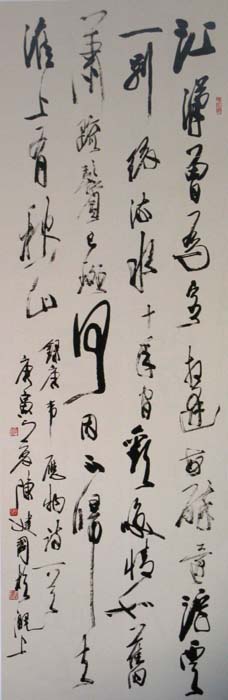 江漢曾為客相逢每醉還浮雲
一別後流水十年間歡笑情如舊
蕭疏鬢已斑何因不歸去
淮上有秋山
錄唐韋應物詩一首
庚寅之夏陳建國